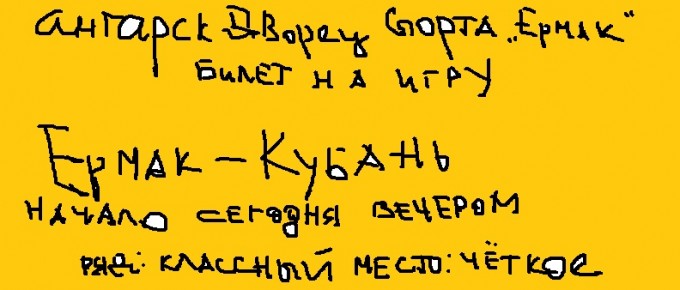 Ангарск Дворец Спорта „Ермак“
БИЛЕТ НА ИГРУ
ЕРМАК – КУБАНЬ
НАЧАЛО СЕГОДНЯ ВЕЧЕРОМ
РЯД: КЛАССНЫЙ МЕСТО: ЧЁТКОЕ